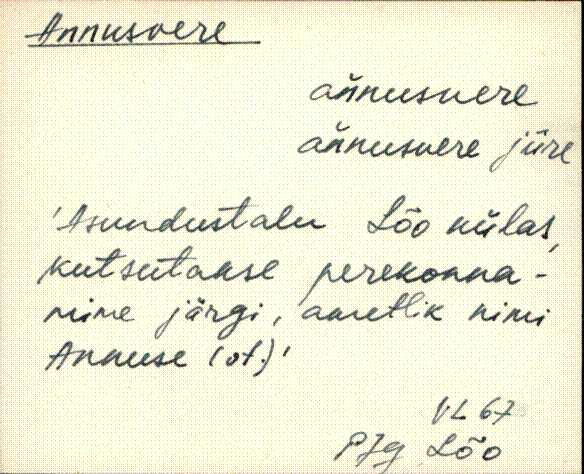 Annusvere
ańnusvere
ańnusvere jüre
'Asundustalu Lõo külas,
kutsutakse perekonna-
nime järgi, ametlik nimi
Annuse (of.)'
VL 67
PJg Lõo